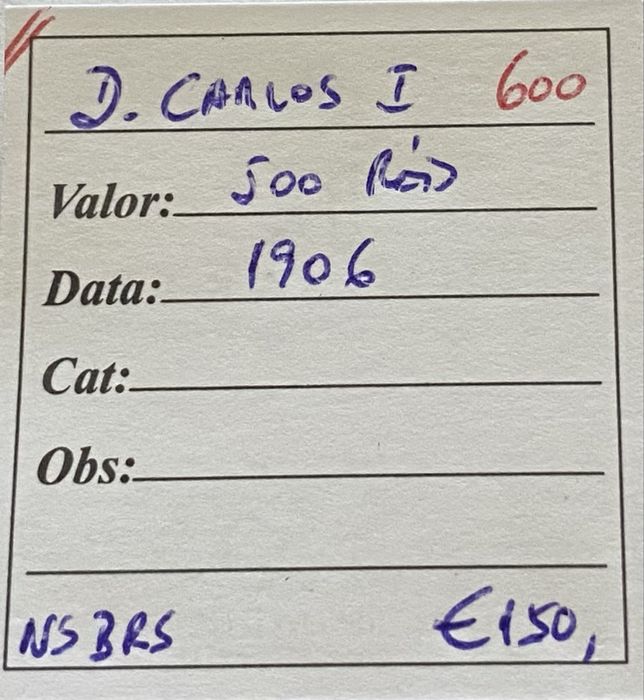 D. CARLOS I 600
Valor: 500 Réis
Data: 1906
Cat:
Obs:
NSBRS €150,